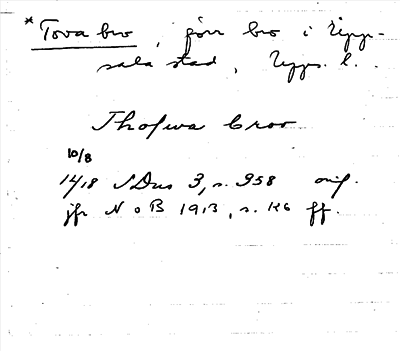 * Tova bro, förr bro i Upp-
sala stad, Upps. l.
Thofwa broo
10/8
1418 SDns 3, s. 358 orig.
jfr N o B 1913, s. 126 ff.